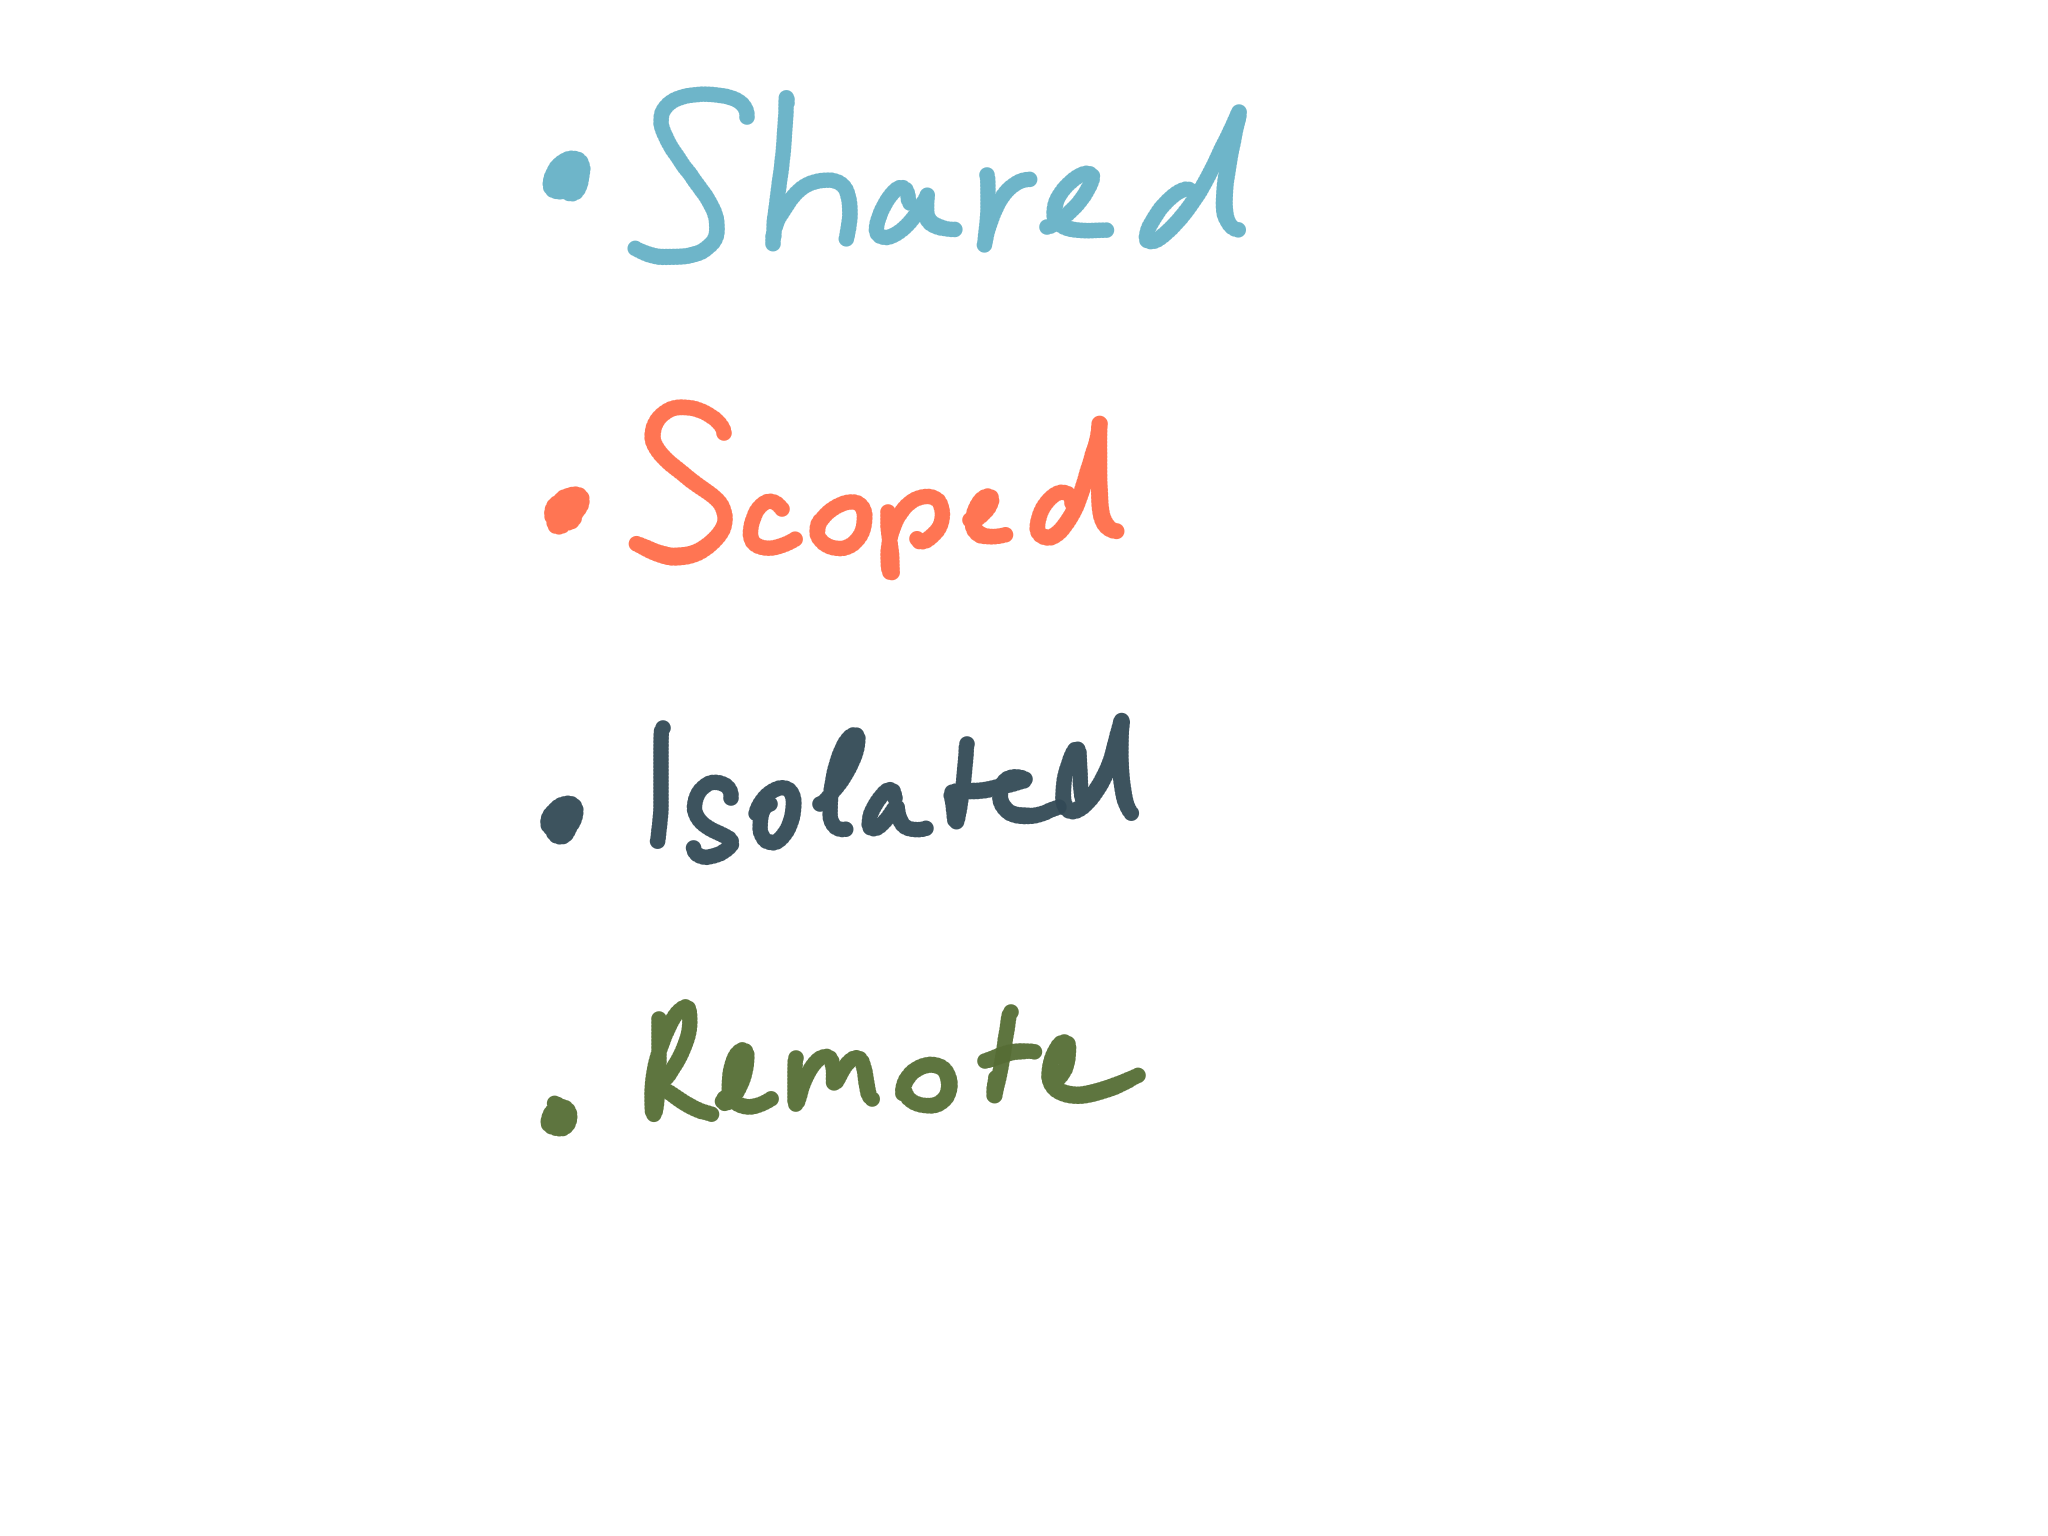 • Shared
• Scoped
• Isolated
• Remote